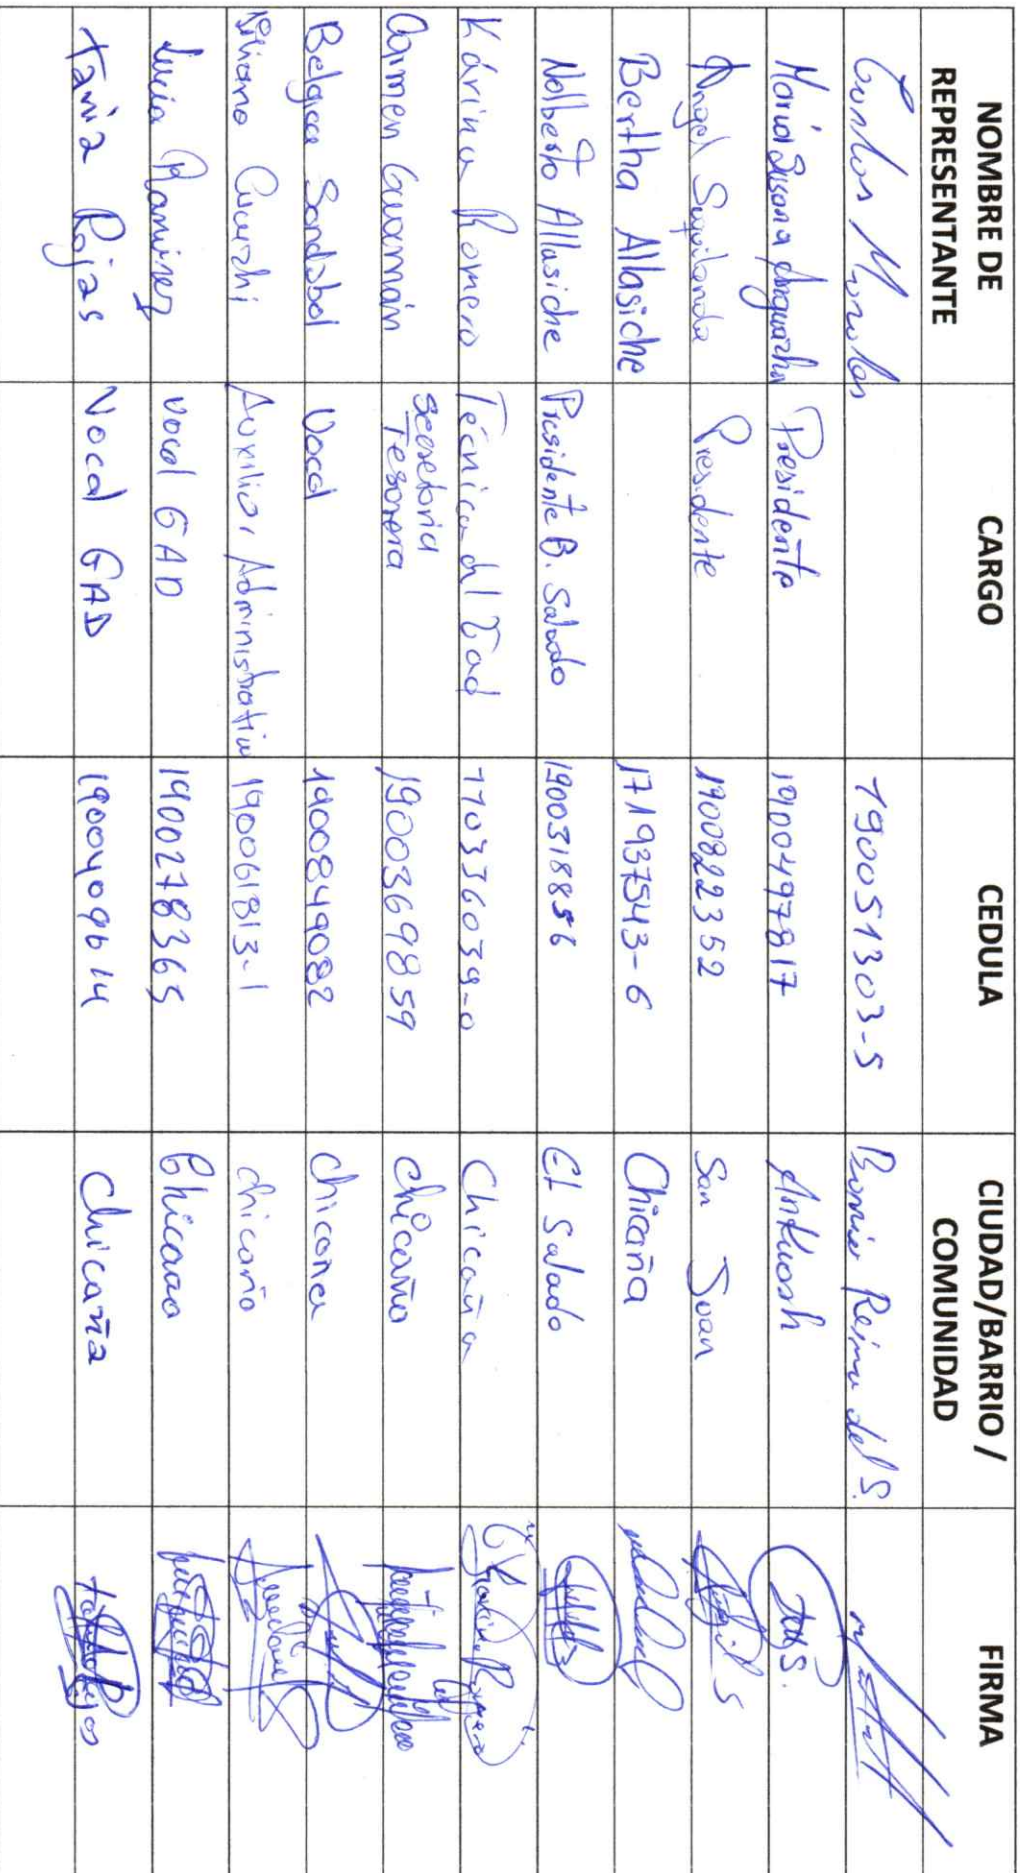 NOMBRE DE REPRESENTANTE CARGO CEDULA CIUDAD/BARRIO / COMUNIDAD FIRMA
Carlos Morales 190051303-5 Barrio Reina del S.
Maria Susana Presidenta 1900497817 Ankuash
Angel Suquilanda Presidente 1900822352 San Juan
Bertha Allasiche 171937543-6 Chicaña
Nolberto Allasiche Presidente B. Salado 1900318856 El Salado
Karina Romero Técnica del Gad 110336039-0 Chicaña
Carmen Guamán Secretaria Tesorera 1900369859 Chicaña
Belgica Sandobal Vocal 1900849082 Chicana
Liliana Auxiliar Administrativa 190061813-1 chicaña
Lucia Ramirez Vocal GAD 1900278365 Chicaña
Tania Rojas Vocal GAD 1900409614 Chicaña